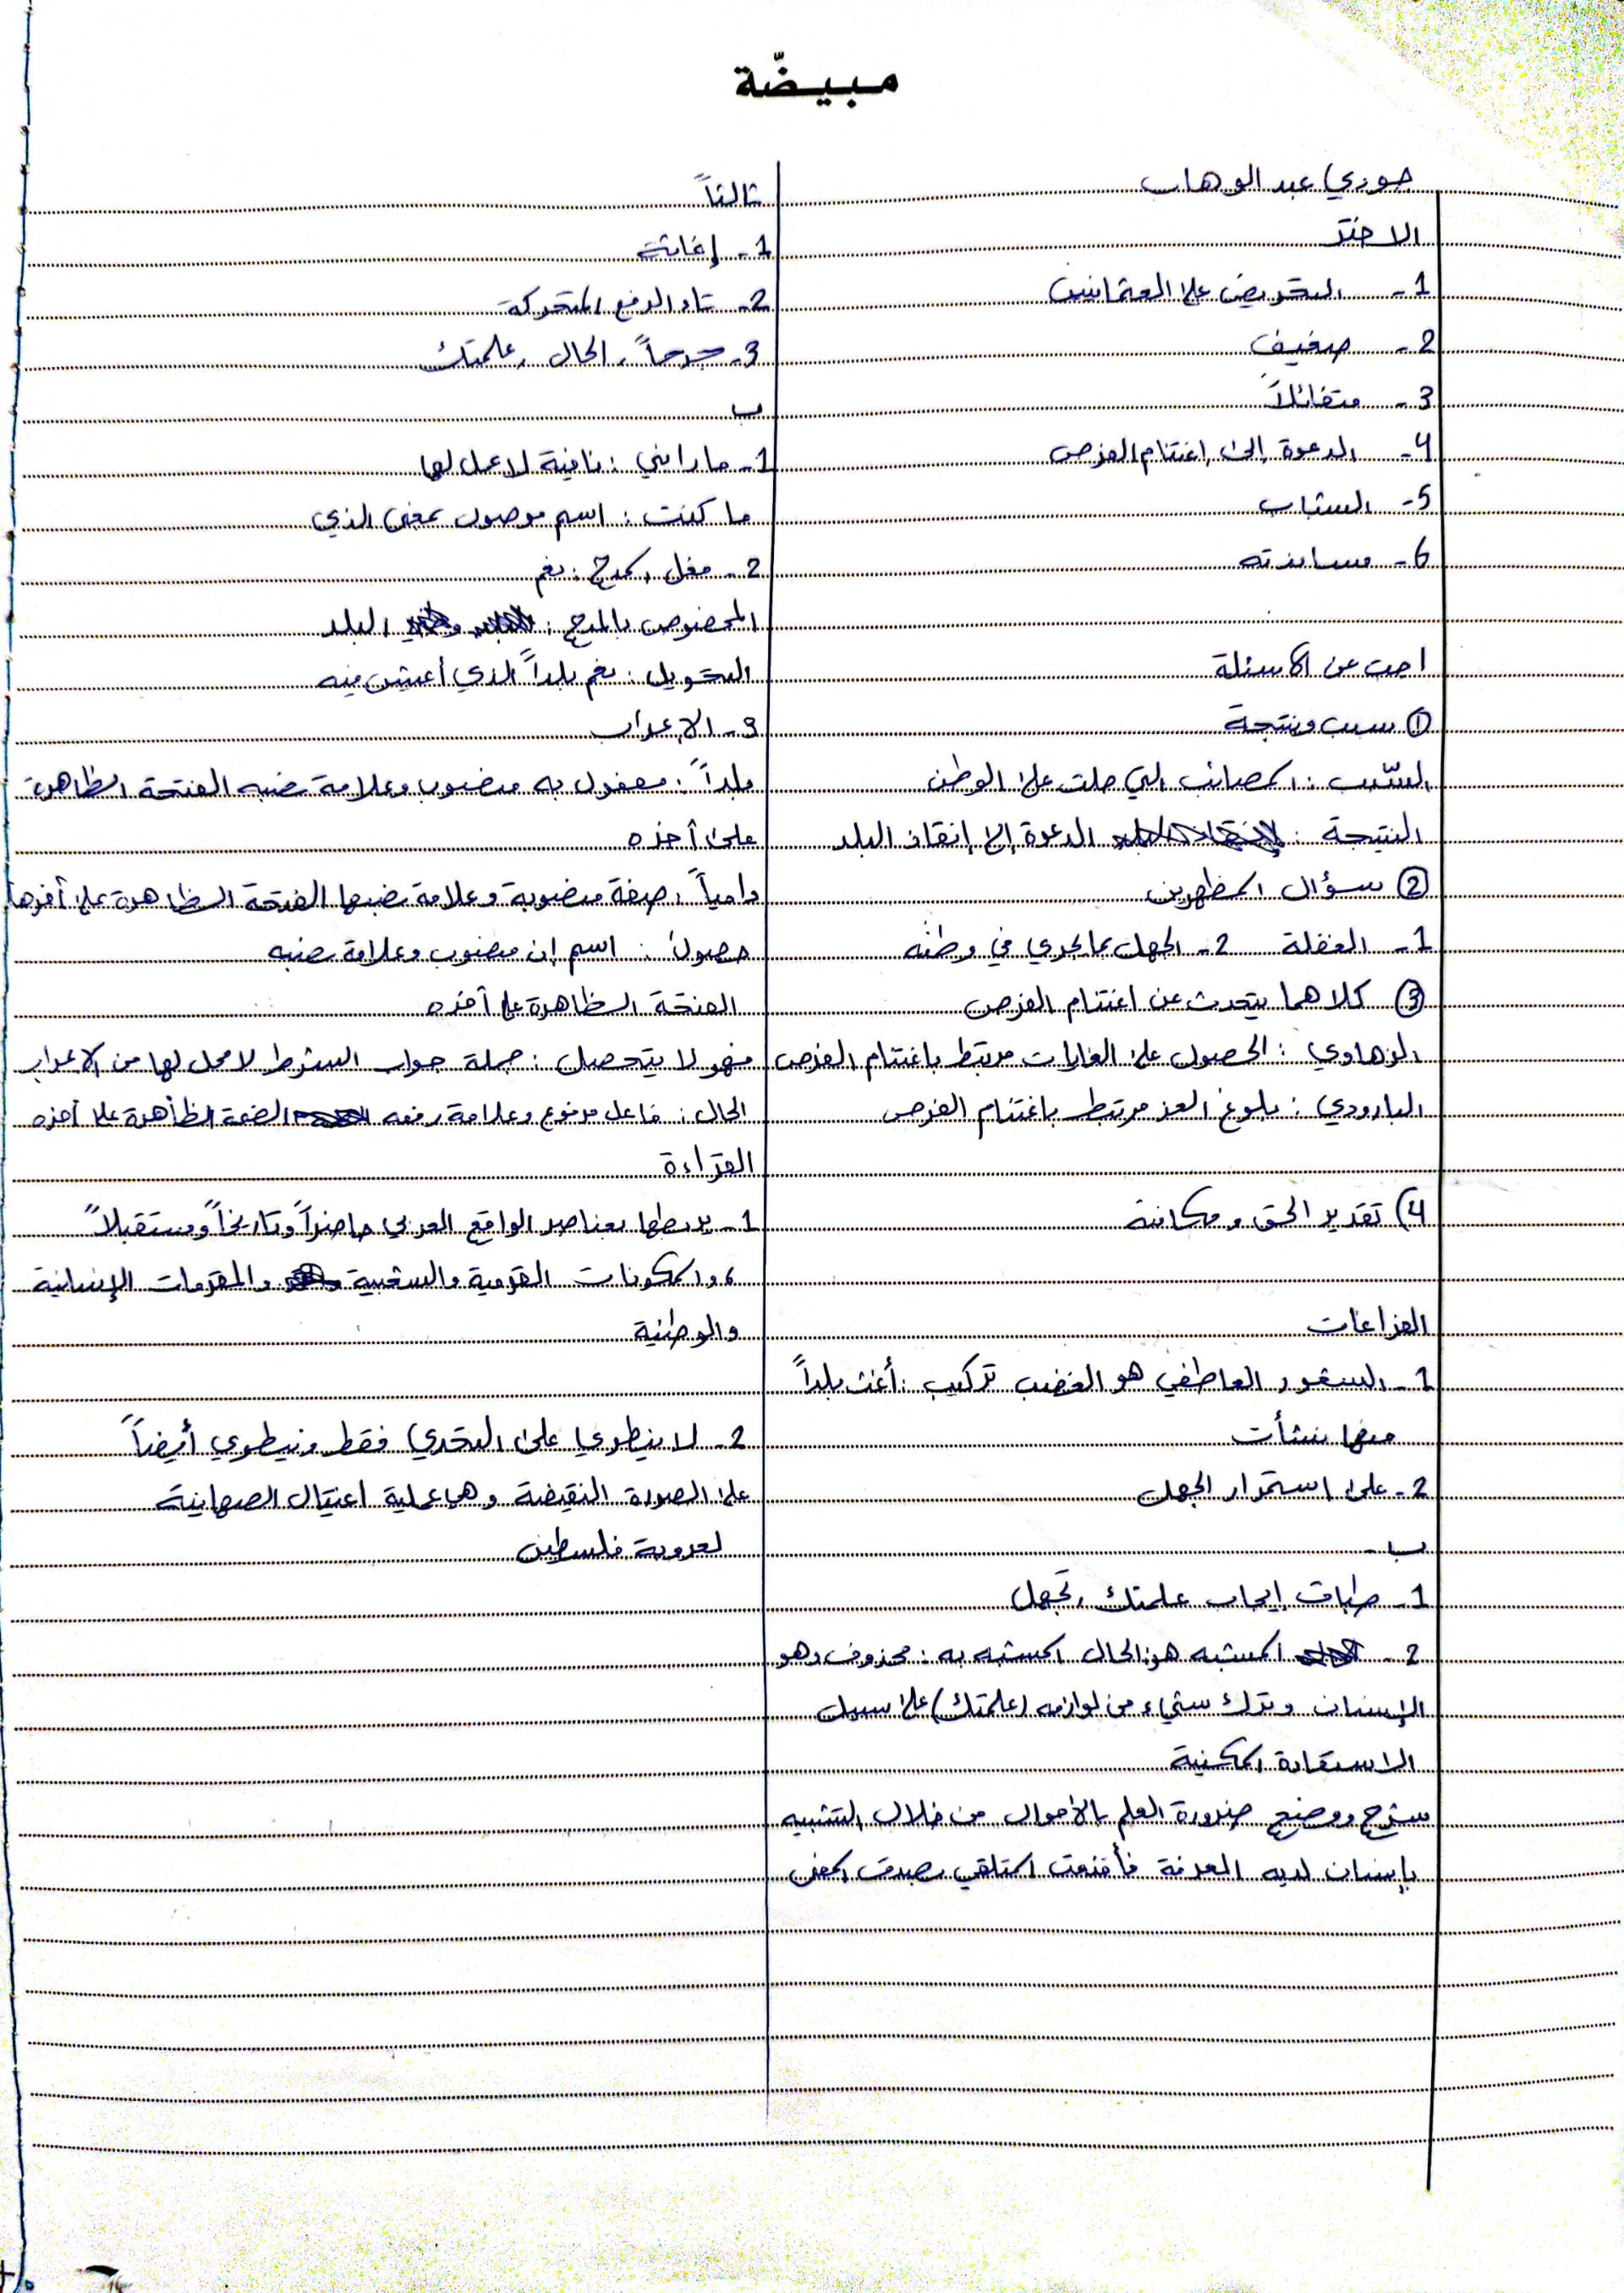 مبيضّة
حوري عبد الوهاب
الاختر
1- التحريض على العثمانيين
2- ضعيف
3- متفائلاً
4- الدعوة إلى اغتنام الفرص
5- الشباب
6- مساندته
اجب عن الأسئلة
① سبب ونتيجة
السبب : المصائب التي حلت على الوطن
النتيجة : الدعوة إلى إنقاذ البلد
② سؤال المظهرين
1- الغفلة 2- الجهل بما يجري في وطنه
③ كلاهما يتحدث عن اغتنام الفرص
الزهاوي : الحصول على الغايات مرتبط باغتنام الفرص
البارودي : بلوغ العز مرتبط باغتنام الفرص
4) تقدير الحق ومكانته
الفراغات
1- الشعور العاطفي هو الغضب تركيب : أغث بلداً
منها نشأت
2- على استمرار الجهل
ب-
1- طباق إيجاب علمتك، تجهل
2- المشبه هو: الحال المشبه به : محذوف وهو
الإنسان وترك شيء من لوازمه (علمتك) على سبيل
الاستعارة المكنية
شرح ووضح ضرورة العلم بالأحوال من خلال التشبيه
بإنسان لديه المعرفة فأقنعت المتلقي بصدق المعنى
ثالثاً
1- إغاثة
2- تاء الرفع المتحركة
3- الحال، علمتك
ب
1- ما راني : نافية لا عمل لها
ما كنت : اسم موصول بمعنى الذي
2- فعل المدح : نعم
المخصوص بالمدح : البلد
التحويل : نعم بلداً الذي أعيش فيه
3- الإعراب
بلداً : مفعول به منصوب وعلامة نصبه الفتحة الظاهرة
على آخره
دامياً : صفة منصوبة وعلامة نصبها الفتحة الظاهرة على آخرها
حصول : اسم إن منصوب وعلامة نصبه
الفتحة الظاهرة على آخره
فهو لا يتحصل : جملة جواب الشرط لا محل لها من الإعراب
الحال : فاعل مرفوع وعلامة رفعه الضمة الظاهرة على آخره
القراءة
1- يربطها بعناصر الواقع العربي حاضراً وتاريخاً ومستقبلاً
، والمكونات القومية والشعبية والمقومات الإنسانية
والوطنية
2- لا ينطوي على التحدي فقط وينطوي أيضاً
على الصورة النقيضة وهي عملية اغتيال الصهاينة
لعروبة فلسطين